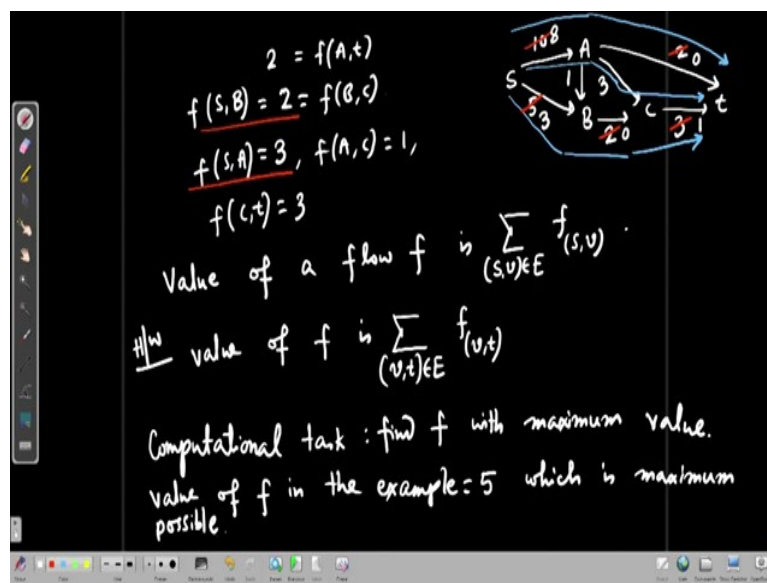 2 = f(A,t)
f(S,B) = 2 = f(B,C)
f(S,A) = 3, f(A,C) = 1,
f(C,t) = 3
10 8
A
2 0
S
1
3
5 3
B
2 0
C
3 1
t
Value of a flow f is ∑ f(S,v) .
(S,v)∈E
H/W value of f is ∑ f(v,t)
(v,t)∈E
Computational task : find f with maximum value.
value of f in the example = 5 which is maximum
possible.